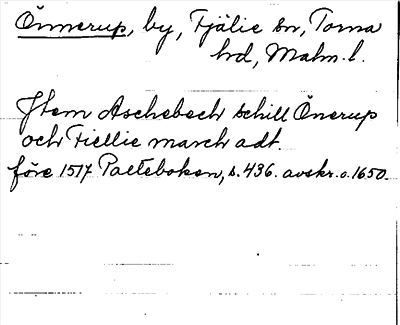 Önnerup, by, Fjälie sn, Torna
hd, Malm. l.
Jtem Aschebech schill Önerup
och Fiellie march adt.
före 1517 Palteboken, s. 436. avskr. c. 1650.